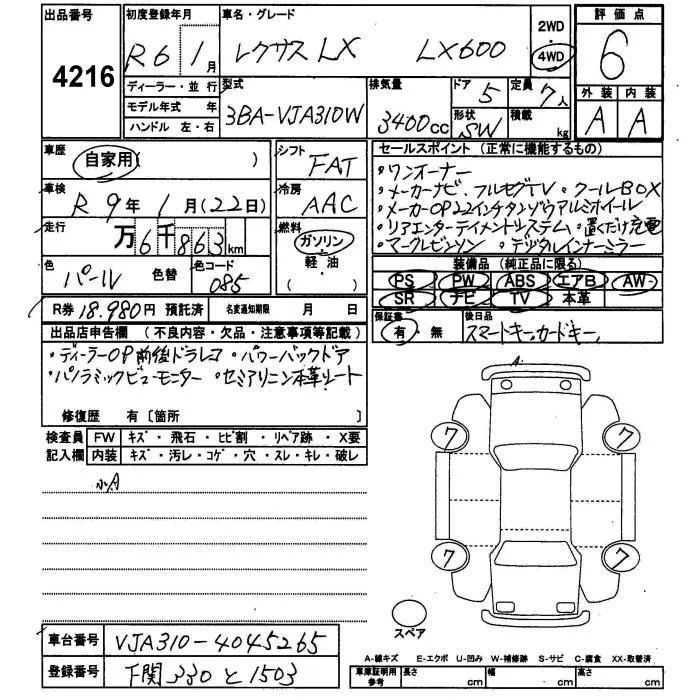 出品番号
4216
初度登録年月
R6 1月
車名・グレード
レクサス LX LX600
2WD
・
4WD
評価点
6
外装 内装
A A
ディーラー・並行
モデル年式 年
ハンドル 左・右
型式
3BA-VJA310W
排気量
3400cc
ドア
5
形状
SW
定員
7人
積載
kg
車歴
自家用( )
車検
R 9年 1月(22日)
走行
万6千863km
色
パール 色替
色コード
085
シフト
FAT
冷房
AAC
燃料
ガソリン
・
軽油
( )
セールスポイント (正常に機能するもの)
・ワンオーナー
・メーカーナビ、フルセグTV ・クールBOX
・メーカーOP22インチタンゾウアルミホイール
・リアエンターテイメントシステム ・置くだけ充電
・マークレビンソン ・デジタルインナーミラー
装備品 (純正品に限る)
PS PW ABS エアB AW
SR ナビ TV 本革
R券 18,980円 預託済
名変通知期限 月 日
保証書
有・無
後日品
スマートキー、カードキー、
出品店申告欄 (不良内容・欠品・注意事項等記載)
・ディーラーOP前後ドラレコ ・パワーバックドア
・パノラミックビューモニター ・セミアリニン本革シート
修復歴 有〔箇所 〕
検査員
記入欄
FW キズ・飛石・ヒビ割・リペア跡・X要
内装 キズ・汚レ・コゲ・穴・スレ・キレ・破レ
小A
A
7 7
7 7
スペア
車台番号 VJA310-4045265
登録番号 下関 330 と 1503
A-線キズ E-エクボ U-凹み W-補修跡 S-サビ C-腐食 XX-取替済
車庫証明用
参考
長さ cm 幅 cm 高さ cm